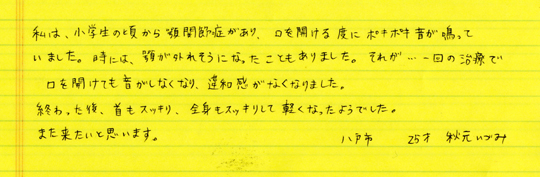 私は、小学生の頃から顎関節症があり、口を開ける度にポキポキ音が鳴って
いました。時には、顎が外れそうになったこともありました。それが…一回の治療で
口を開けても音がしなくなり、違和感がなくなりました。
終わった後、首もスッキリ、全身もスッキリして軽くなったようでした。
また来たいと思います。
八戸市 25才 秋元いづみ